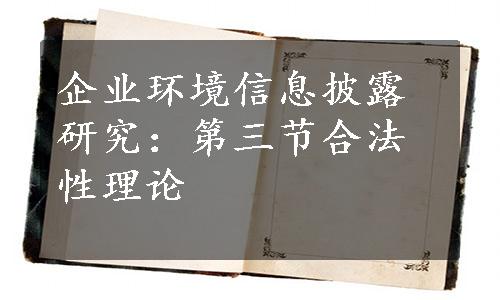 企业环境信息披露
研究：第三节合法
性理论